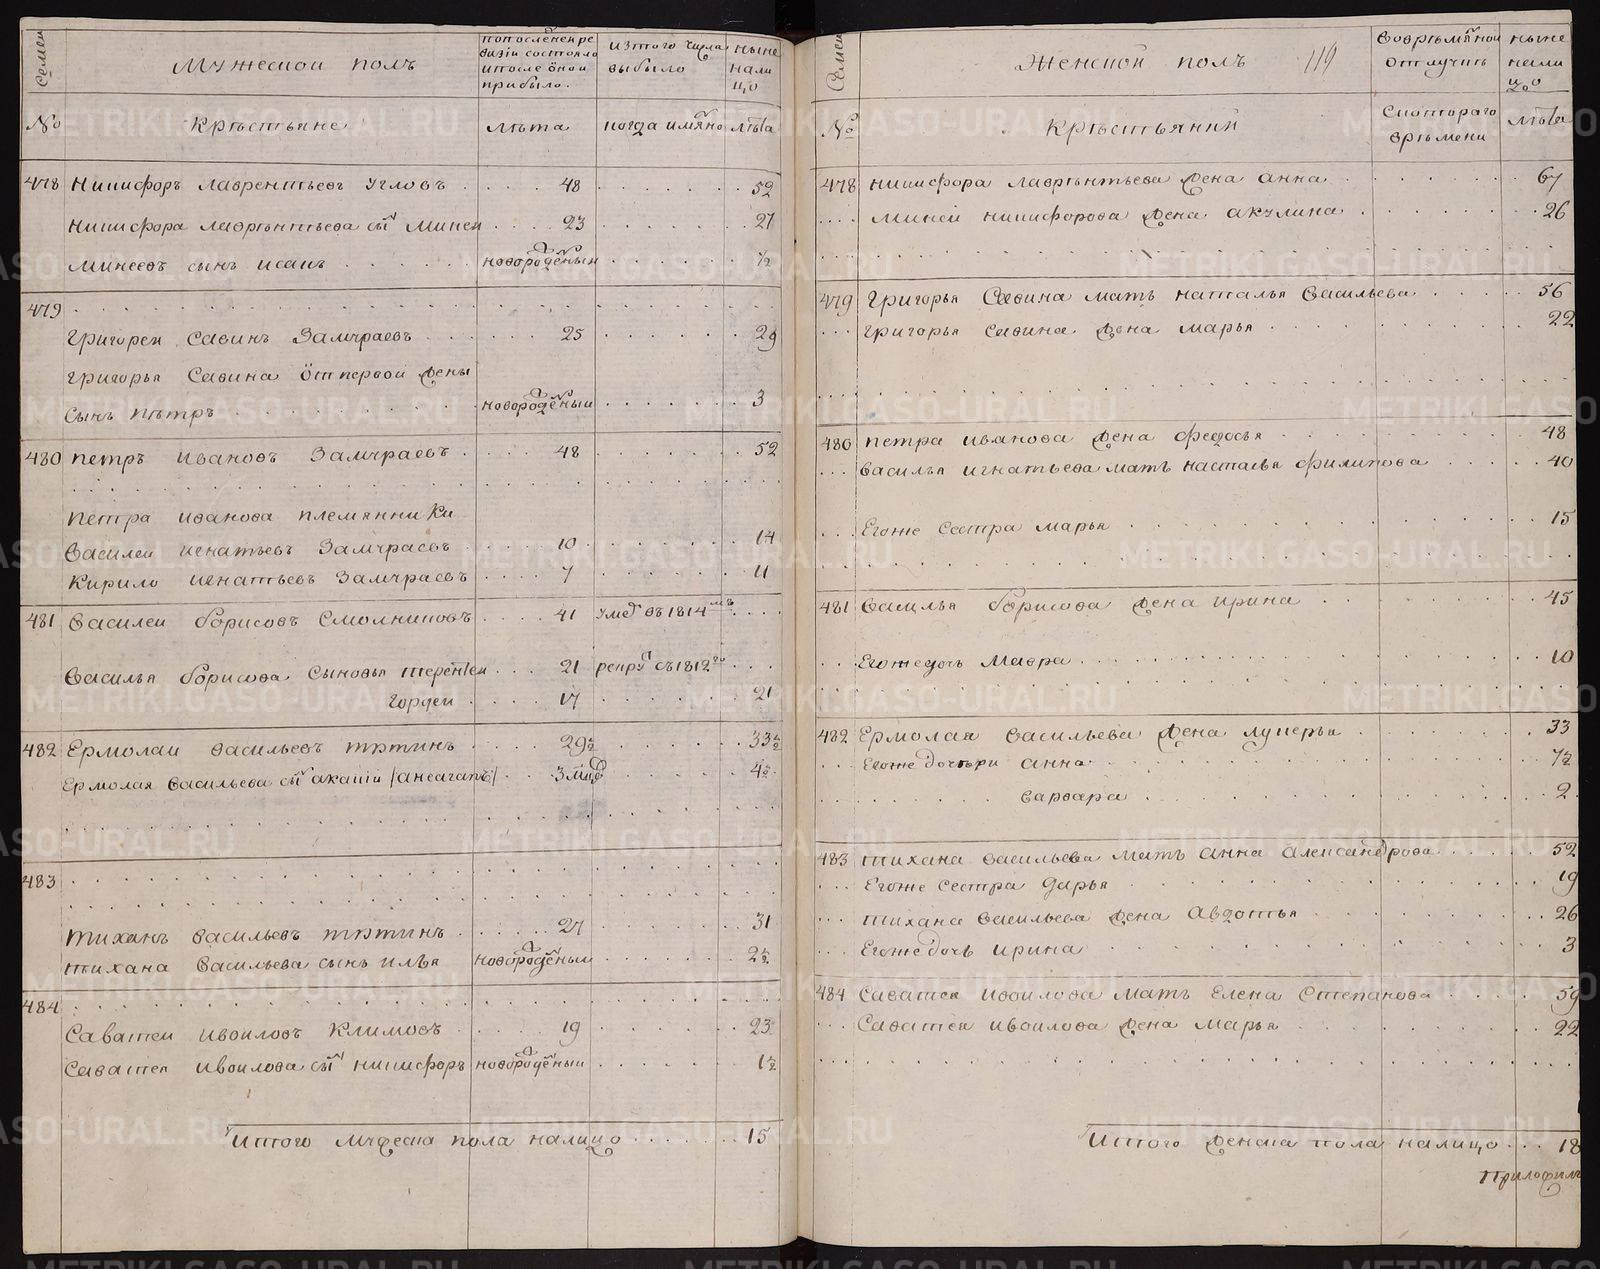 Семеи
№
Мужескои полъ
Крѣстьяне
попоследнеи ре
визіи состояло
ипосле оной
прибыло.
лѣта
изтого числа
выбыло
когда имяно
ныне
нали
цо
лѣта
478 Никифоръ лаврентьевъ угловъ 48 52
Никифора лаврѣнтьева сынъ минеи 23 27
минеевъ сынъ исакъ новорожденыи ½
479
Григореи Савинъ Замураевъ 25 29
Григорья Савина отпервои жены
сынъ пѣтръ новорожденыи 3
480 петръ ивановъ Замураевъ 48 52
петра иванова племянники
василеи игнатьевъ Замураевъ 10 14
кирило игнатьевъ Замураевъ 7 11
481 василеи борисовъ Смолниковъ 41 умер въ 1814мъ
василья борисова сыновья терентеи 21 рекру съ 1812го
гордеи 17 21
482 Ермолаи васильевъ тятинъ 29½ 33½
Ермолая васильева сынъ акакіи 3 мца 4½
483
тиханъ васильевъ тятинъ 27 31
тихана васильева сынъ илья новорожденыи 2½
484
Саватеи ивоиловъ климовъ 19 23
Саватея ивоилова сынъ никифоръ новорожденыи 1½
Итого мужеска пола налицо 15
Семеи
№
Женскои полъ 119
Крѣстьянки
вовремянной
отлучкѣ
Скотораго
врѣмени
ныне
нали
цо
лѣта
478 никифора лаврѣнтьева жена анна 67
минеи никифорова жена акулина 26
479 григорья Савина мать наталья васильева 56
григорья савина жена марья 22
480 петра иванова жена федосья 48
василья игнатьева мать настасья филипова 40
Егоже сестра марья 15
481 василья борисова жена ирина 45
Егожедочь мавра 10
482 Ермолая васильева жена лукерья 33
Егоже дочѣри анна 7½
варвара 2
483 тихана васильева мать анна александрова 52
Егоже сестра дарья 19
тихана васильева жена авдотья 26
Егоже дочь ирина 3
484 Саватея ивоилова мать Елена Степанова 59
Саватея ивоилова жена марья 22
Итого женска пола налицо 18
METRIKI.GASO-URAL.RU